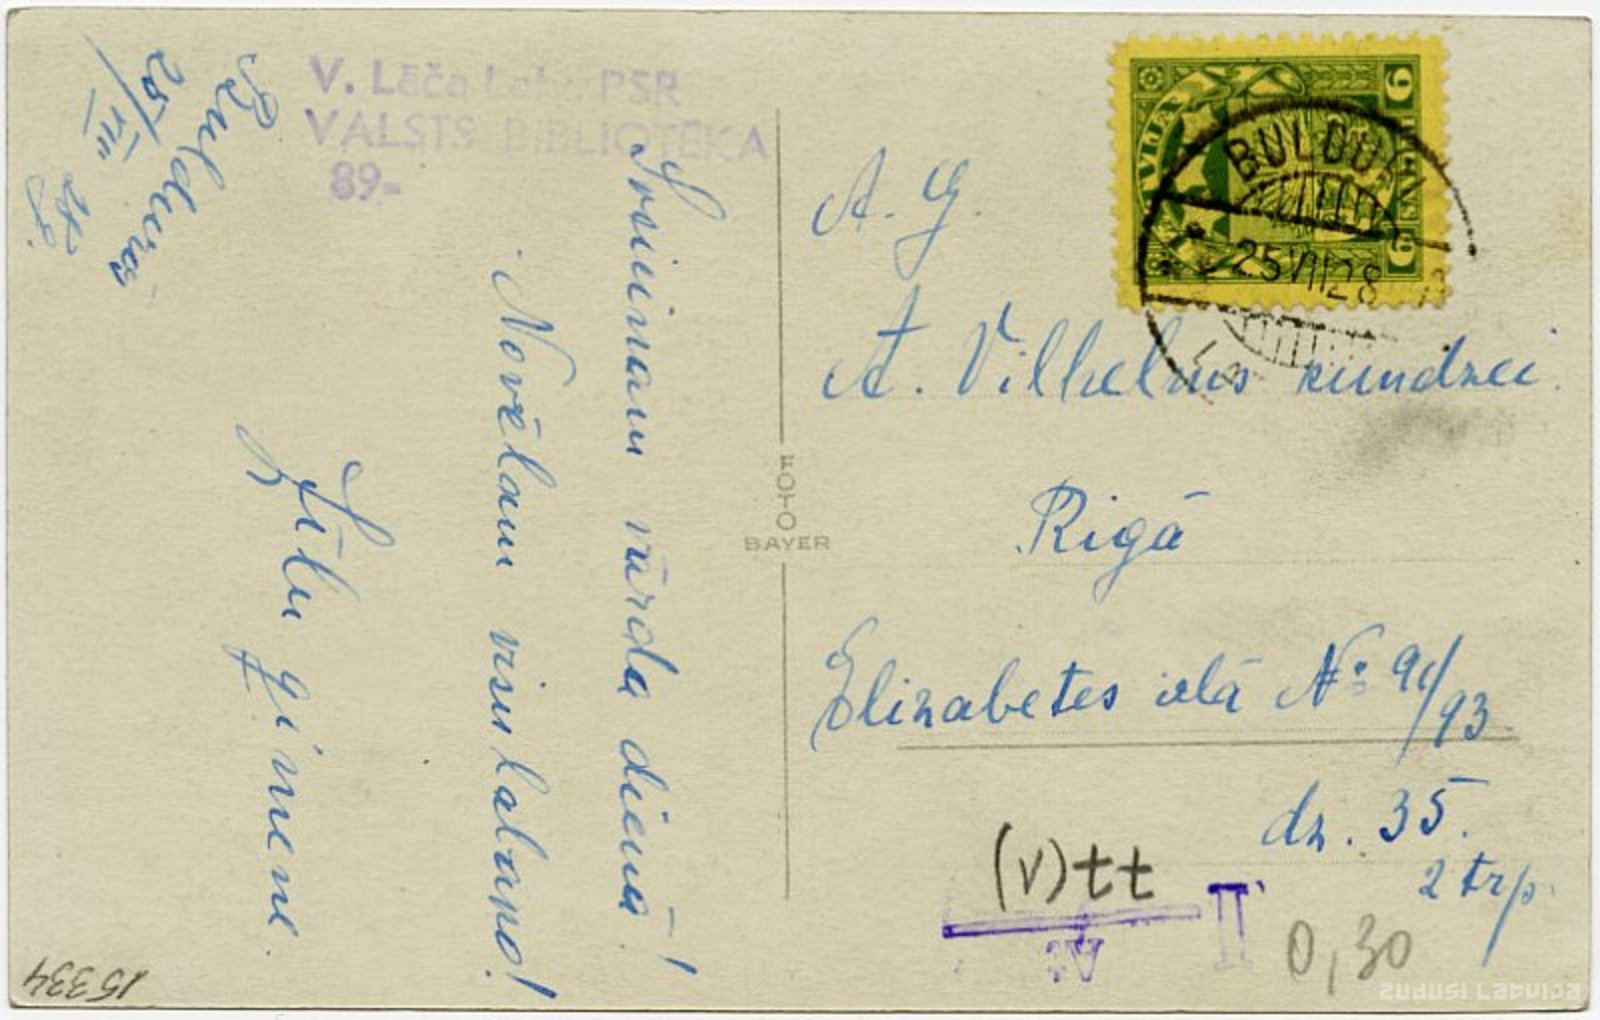 Bulduros
25/VII
28
g.
V. Lāča Latv. PSR
VALSTS BIBLIOTĒKA
89-
Sveicinam vārda dienā!
Novēlam visu labāko!
Zīļu ģimene.
FOTO
BAYER
LATVIJA
9
9
BULDURI
25 VII 28
A. G.
A. Vilhelms kundzei.
Rīgā
Elizabetes ielā № 91/93
dz. 35.
2 trp.
(v)tt
II
0,30
15334
ZUDUSI LATVIJA